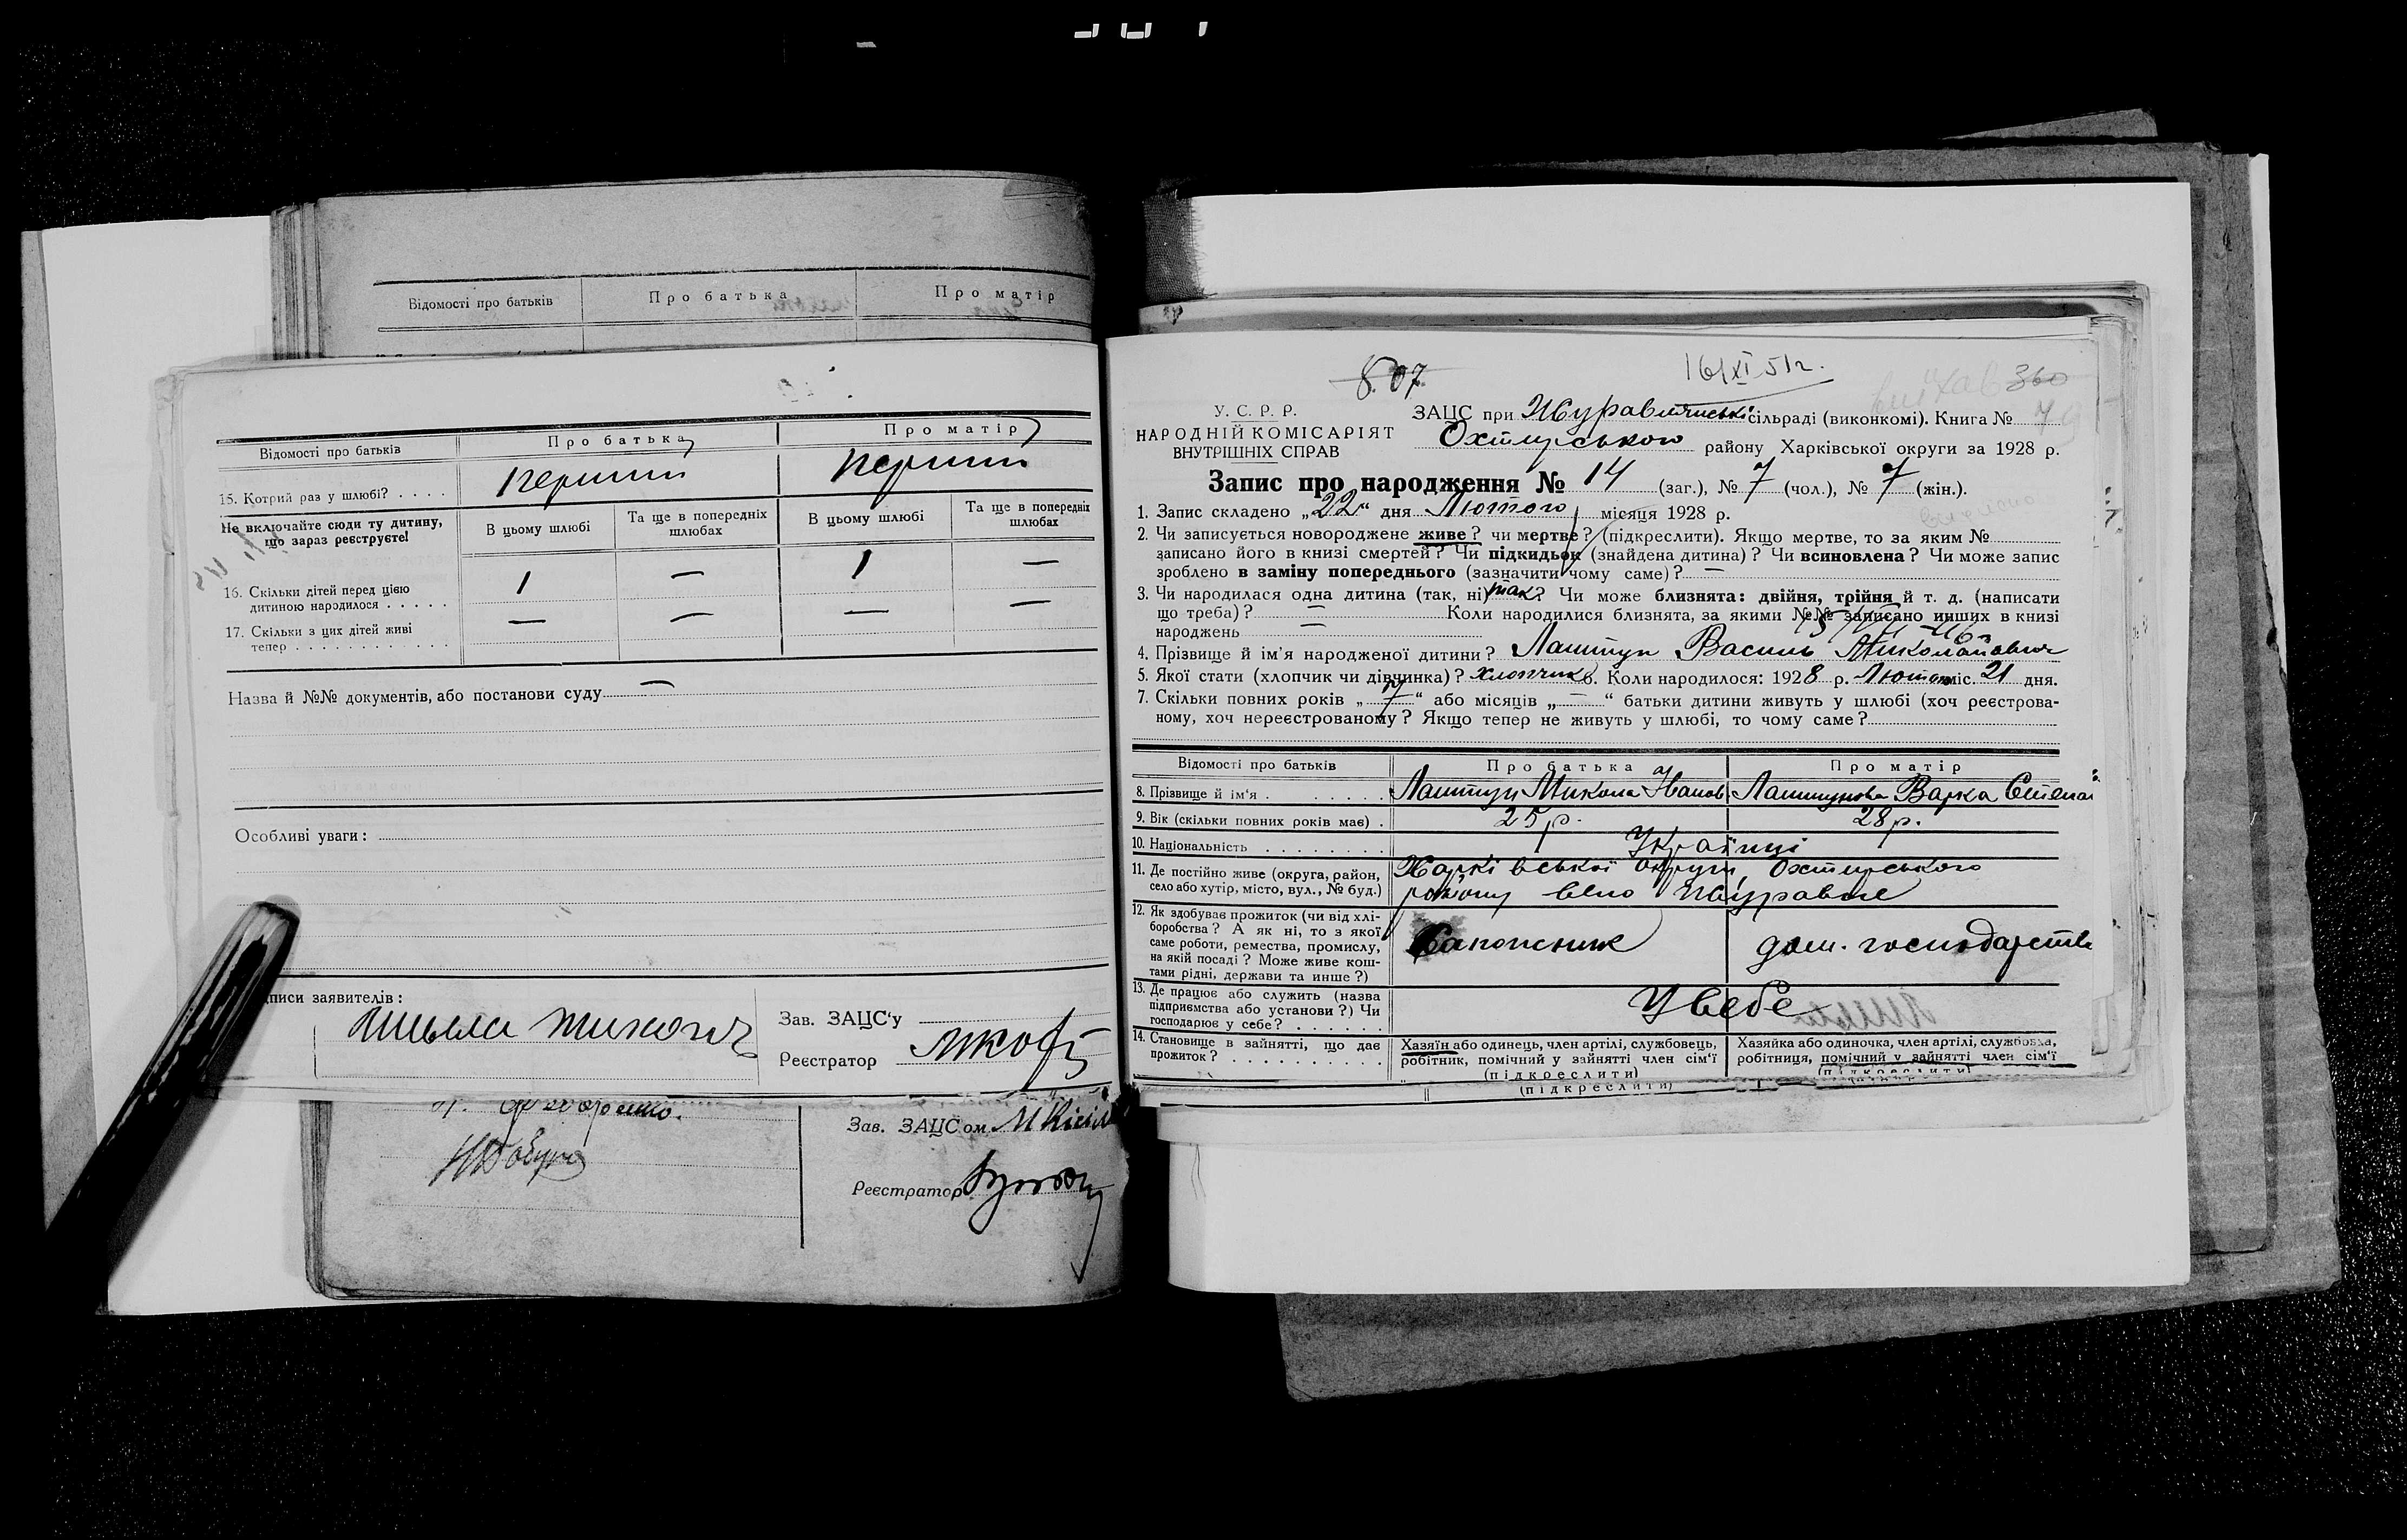 Відомості про батьків
Про батька
Про матір
Відомості про батьків
Про батька
Про матір
15. Котрий раз у шлюбі? . . . .
перший
перший
Не включайте сюди ту дитину, що зараз реєструєте!
В цьому шлюбі
Та ще в попередніх шлюбах
В цьому шлюбі
Та ще в попередніх шлюбах
16. Скільки дітей перед цією
дитиною народилося . . . . .
1 — 1 —
17. Скільки з цих дітей живі
тепер . . . . . . . . . . . .
— — — —
Назва й №№ документів, або постанови суду —
Особливі уваги:
писи заявителів:
Зав. ЗАЦС'у
Реєстратор
Зав. ЗАЦСом
Реєстратор
8.07
16/XI 51 г.
360
У. С. Р. Р.
НАРОДНІЙ КОМІСАРІЯТ
ВНУТРІШНІХ СПРАВ
ЗАЦС при Журавлянській сільраді (виконкомі). Книга №
Охтирського району Харківської округи за 1928 р.
Запис про народження № 14 (заг.), № 7 (чол.), № 7 (жін.).
1. Запис складено „22“ дня Лютого місяця 1928 р.
2. Чи записується новороджене живе? чи мертве? (підкреслити). Якщо мертве, то за яким №
записано його в книзі смертей? Чи підкидьок (знайдена дитина)? Чи всиновлена? Чи може запис
зроблено в заміну попереднього (зазначити чому саме)? —
3. Чи народилася одна дитина (так, ні) так? Чи може близнята: двійня, трійня й т. д. (написати
що треба)? — Коли народилися близнята, за якими №№ записано инших в книзі
народжень —
4. Прізвище й ім'я народженої дитини? Лаштун Василь Миколайович
5. Якої стати (хлопчик чи дівчинка)? хлопчик 6. Коли народилося: 1928 р. Лютого міс. 21 дня.
7. Скільки повних років „7“ або місяців „—“ батьки дитини живуть у шлюбі (хоч реєстрова-
ному, хоч нереєстрованому? Якщо тепер не живуть у шлюбі, то чому саме?
Відомості про батьків
Про батька
Про матір
8. Прізвище й ім'я . . . . . . . .
Лаштун Микола Іванов
Лаштунова Варка Степан
9. Вік (скільки повних років має) .
25 р.
28 р.
10. Національність . . . . . . . .
Українці
11. Де постійно живе (округа, район,
село або хутір, місто, вул., № буд.)
Харківської округи, Охтирського
району село Журавне
12. Як здобуває прожиток (чи від хлі-
боробства? А як ні, то з якої
саме роботи, ремества, промислу,
на якій посаді? Може живе кош-
тами рідні, держави та инше?)
Сапожник
дом. господарств
13. Де працює або служить (назва
підприємства або установи?) Чи
господарює у себе? . . . . . .
У себе
14. Становище в зайнятті, що дає
прожиток? . . . . . . . . . . .
Хазяїн або одинець, член артілі, службовець,
робітник, помічний у зайнятті член сім'ї
(підкреслити)
Хазяйка або одиночка, член артілі, службовка,
робітниця, помічний у зайнятті член сім'ї
(підкреслити)
(підкреслити)